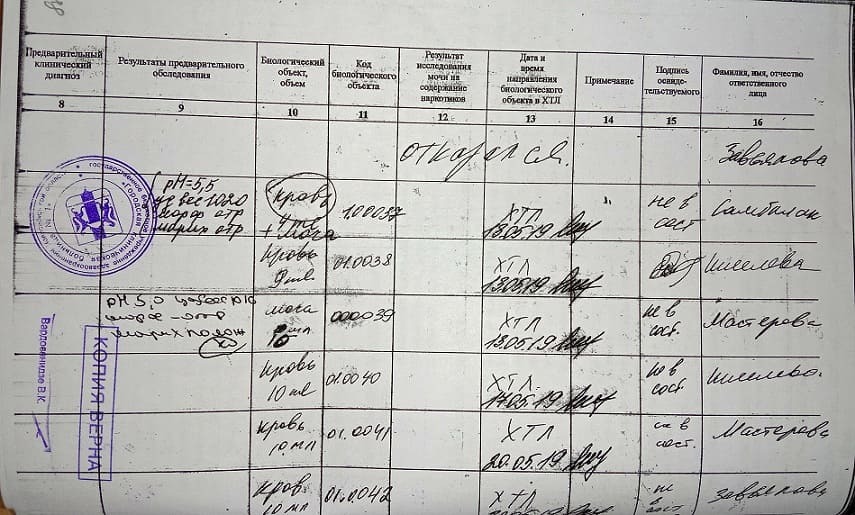 Предварительный клинический диагноз
Результаты предварительного обследования
Биологический объект, объем
Код биологического объекта
Результат исследования мочи на содержание наркотиков
Дата и время направления биологического объекта в ХТЛ
Примечание
Подпись освиде-тельствуемого
Фамилия, имя, отчество ответственного лица
8 9 10 11 12 13 14 15 16
отказался. Завьялова
pH=5,5
уд вес 1020
морф отр
марих отр
кровь
+ моча
100037
ХТЛ
13.05.19
не в сост
кровь
01.0038
ХТЛ
13.05.19
Киселева
pH 5,0
морф - отр
марих полож
моча
000039
ХТЛ
13.05.19
не в сост.
Мастерова
кровь 10 мл
01.0040
ХТЛ
17.05.19
не в сост
Киселева
кровь 10 мл
01.0041
ХТЛ
20.05.19
не в сост.
Мастерова
кровь 10 мл
01.0042
ХТЛ
не в сост
Завьялова
Вардосанидзе В.К.
КОПИЯ ВЕРНА